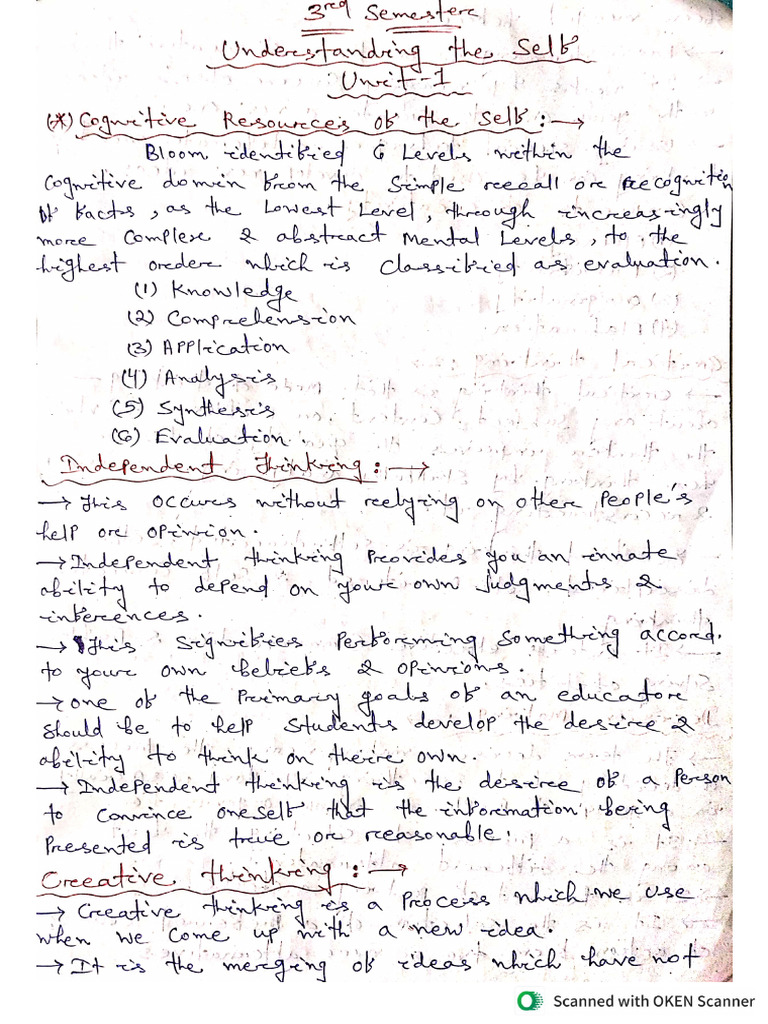 3rd Semester
Understanding the Self
Unit-1
(*) Cognitive Resources of the Self :→
Bloom identified 6 Levels within the
Cognitive domain from the Simple recall or recognition
of facts, as the Lowest Level, through increasingly
more Complex & abstract Mental Levels, to the
highest order which is Classified as evaluation.
(1) Knowledge
(2) Comprehension
(3) Application
(4) Analysis
(5) Synthesis
(6) Evaluation.
Independent Thinking :→
→ This occurs without relying on other People's
help or opinion.
→ Independent thinking Provides you an innate
ability to depend on your own Judgments &
inferences.
→ This Signifies Performing Something accord.
to your own beliefs & opinions.
→ one of the Primary goals of an educator
Should be to help Students develop the desire &
ability to think on their own.
→ Independent thinking is the desire of a Person
to Convince oneself that the information being
Presented is true or reasonable.
Creative thinking :→
→ Creative thinking is a Process which we use
when we Come up with a new idea.
→ It is the merging of ideas which have not
Scanned with OKEN Scanner